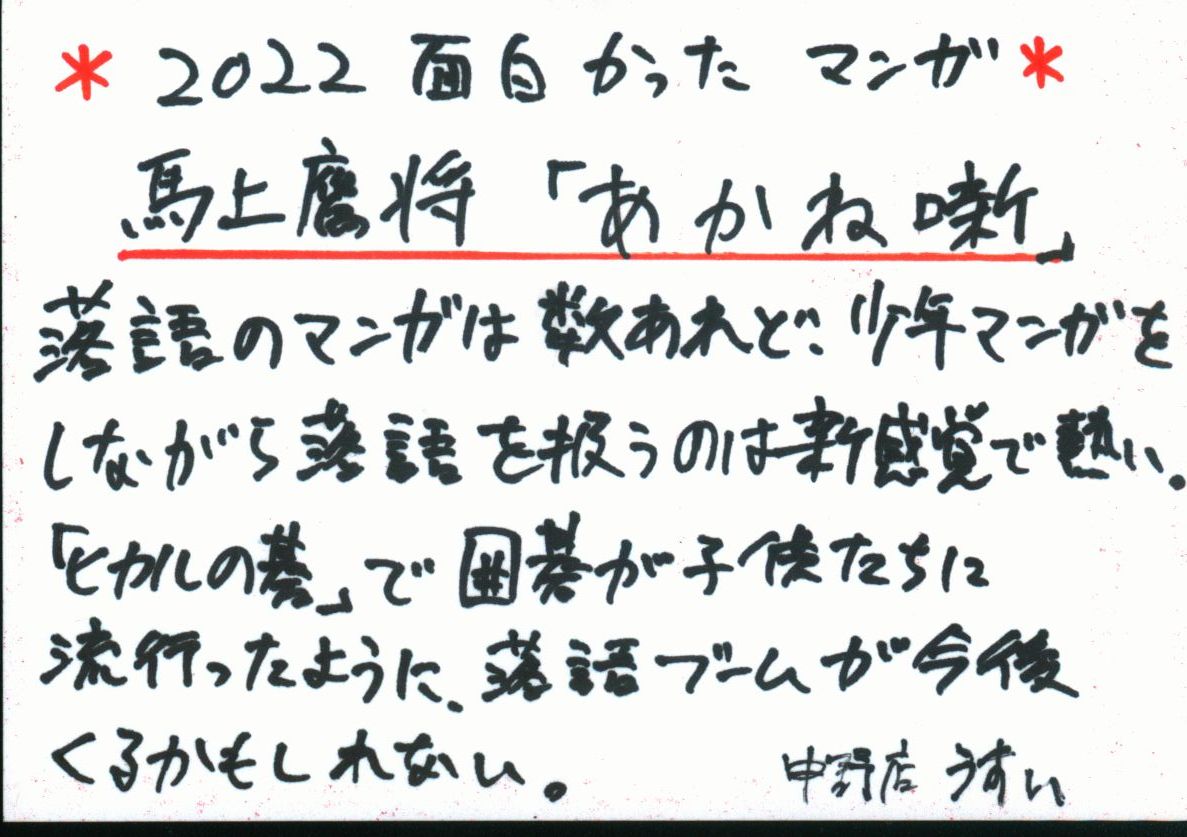 *2022 面白かった マンガ*
馬上鷹将「あかね噺」
落語のマンガは数あれど、少年マンガを
しながら落語を扱うのは新感覚で熱い。
「ヒカルの碁」で囲碁が子供たちに
流行ったように、落語ブームが今後
くるかもしれない。
中野店 うすい